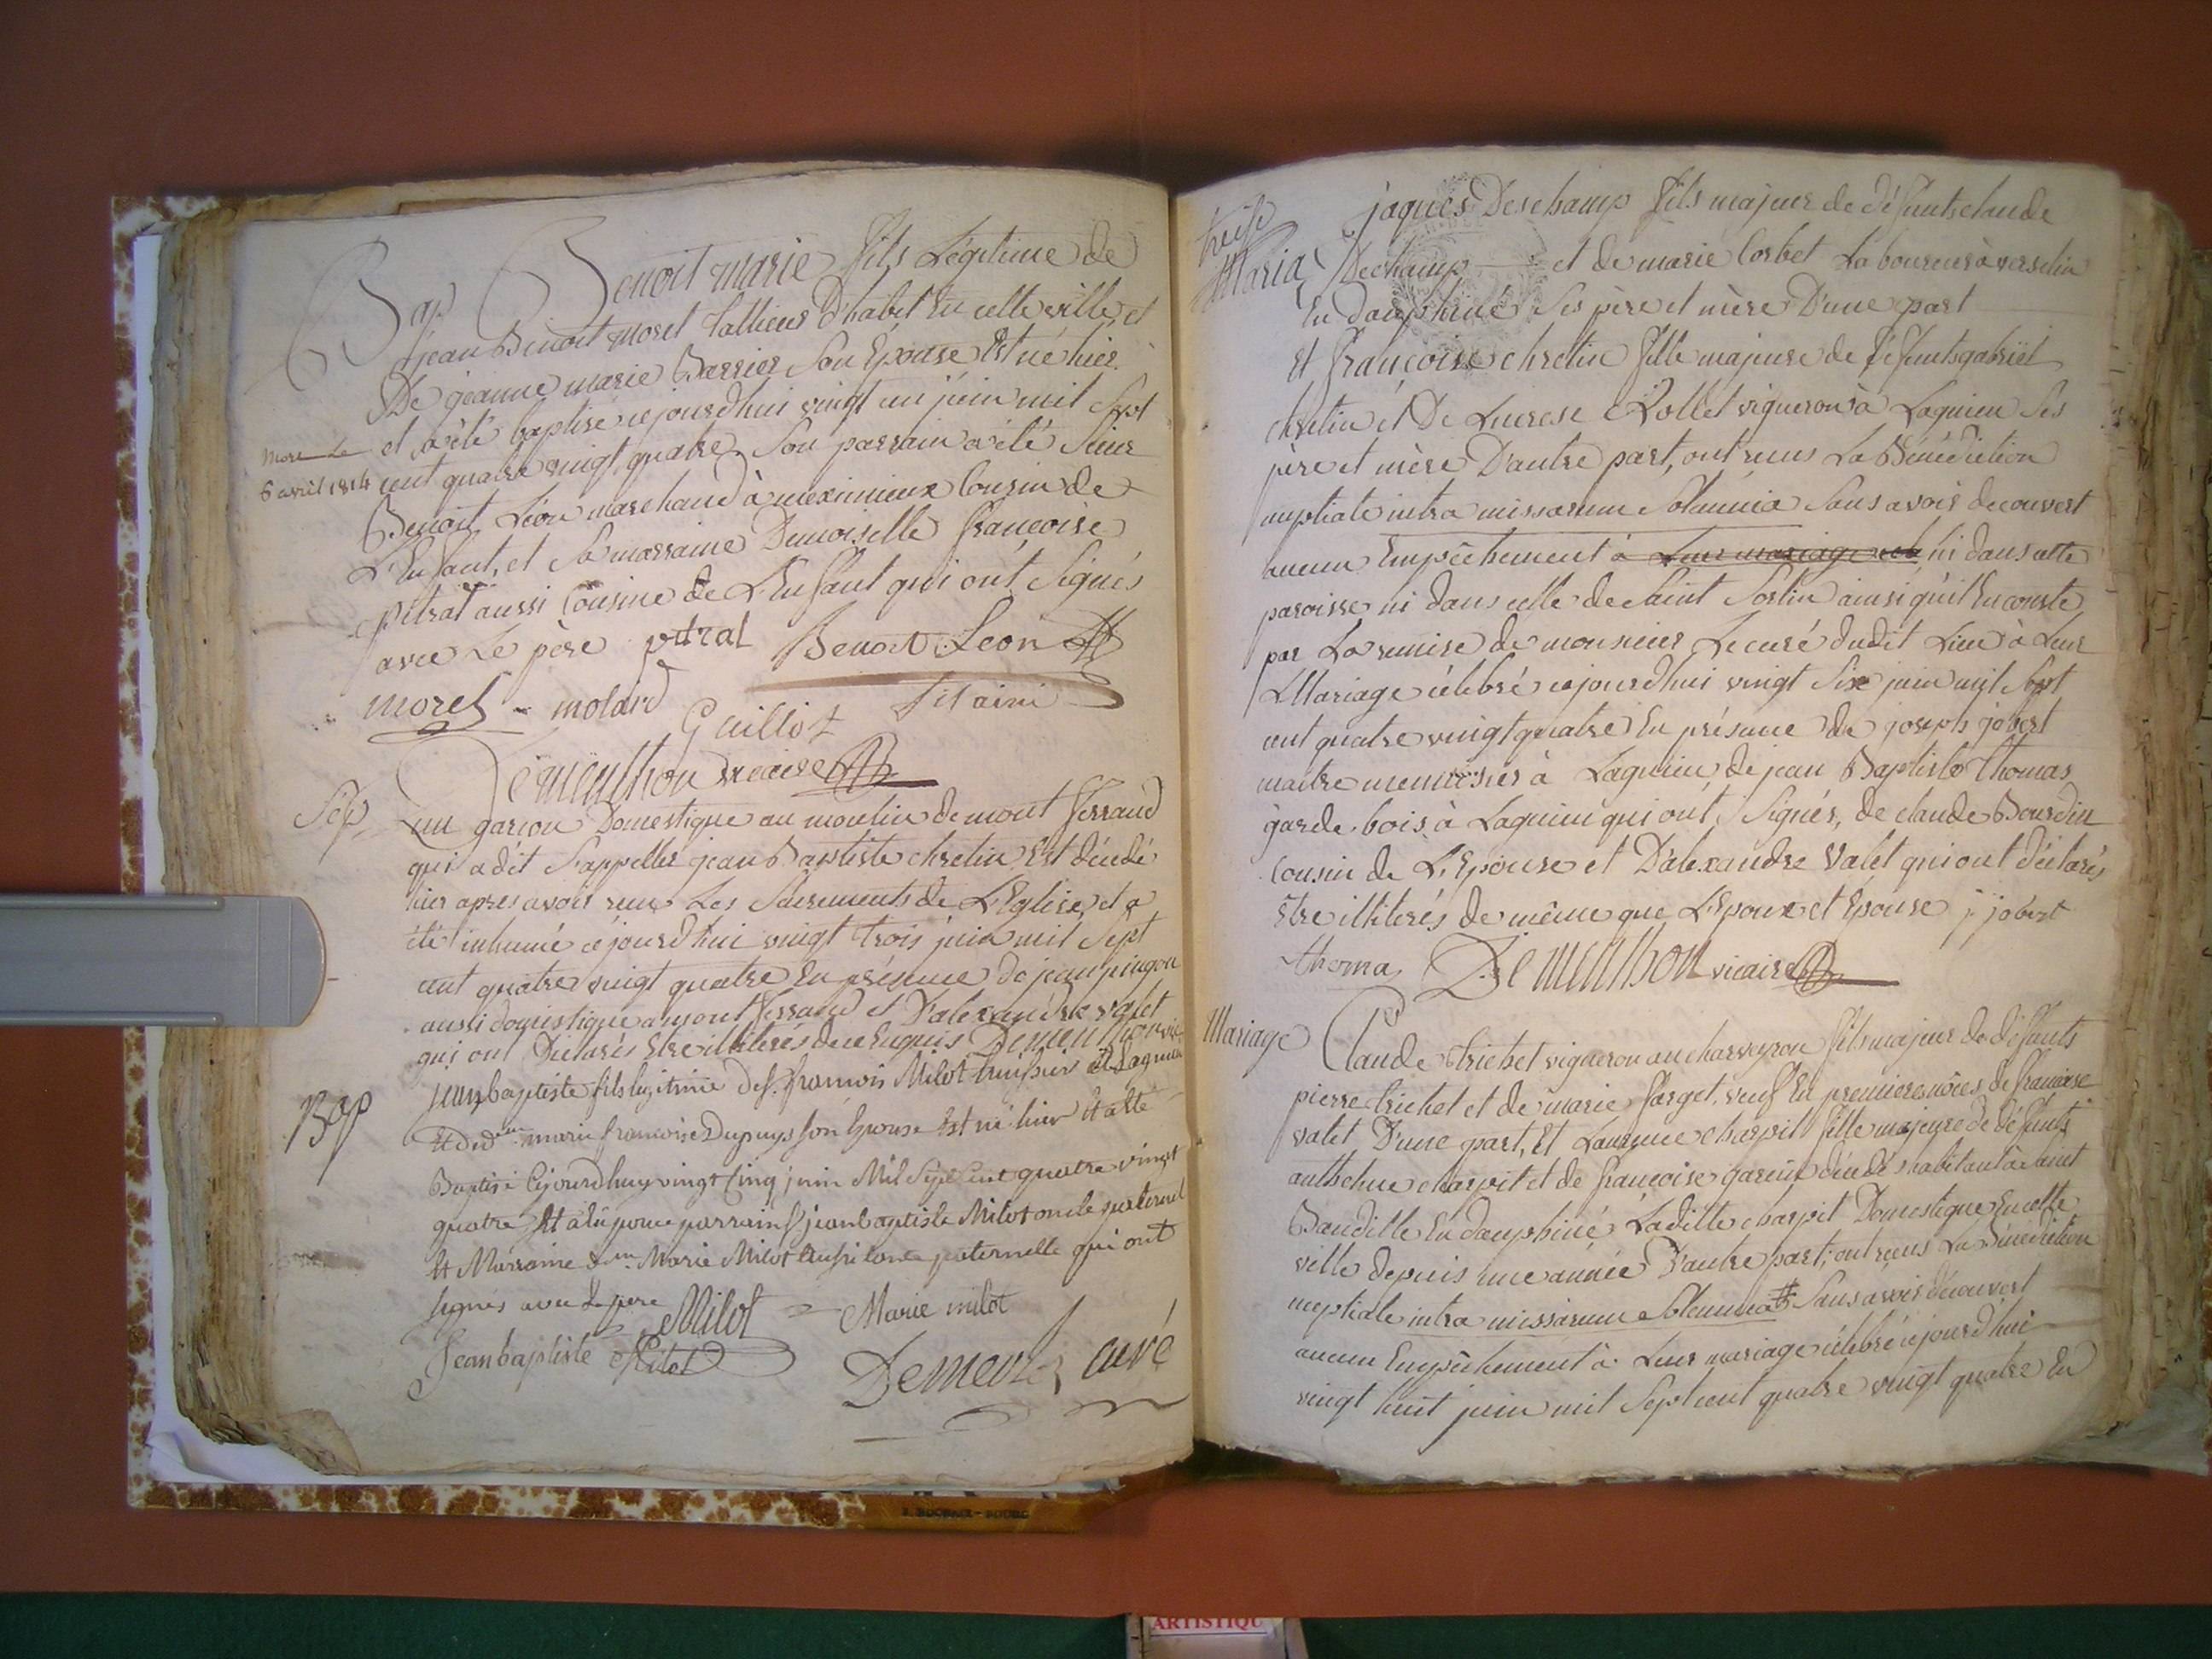 Bap Benoit marie fils Légitime de
jean Benoit morel tallieur d'habet En cette ville et
De jeanne marie Barrier Son Epouse Est né hier
et a été baptisé cejourdhui vingt un juin mil Sept
mort Le
6 avril 1814
cent quatre vingt quatre Son parrain a été Sieur
Benoit Léon marchand à meximieux Cousin de
L'Enfant, et Sa marraine Demoiselle françoise
petrat aussi Cousine de L'Enfant qui ont Signés
avec Le père petrat Benoit Leon
morel molard Guillot fil ainé
Demeuthon vicaire
Sep Un garcon Domestique au moulin de mont ferrand
qui a dit S'appeller jean Baptiste chretin Est décédé
hier apres avoir reçu Les Sacrements de L'Eglise, et a
été inhumé cejourdhui vingt trois juin mil Sept
cent quatre vingt quatre En présence de jean pingon
aussi domestique amont ferrand et D'alexandre valet
qui ont Déclarés Etre illiterés de ce Enquis Demeuthon vic
Bap jean baptiste fils legitime de sr. francois Milot huissier a Lagnieu
Et de dlle marie francoise Dupuys son Epouse Est né hier Et a été
Baptisé Cejourdhuy vingt Cinq juin Mil Sept cent quatre vingt
quatre Et a eü pour parrain sr jean baptiste Milot oncle paternel
Et Marraine dlle Marie Milot aussi tante paternelle qui ont
signés avec Le pere Milot Marie milot
Jean baptiste Milot
Demeure curé
treise
Maria jaques Deschamp fils majeur de défunts claude
Dechamp et de marie Corbet Laboureurs à verselin
En dauphiné Ses père et mère D'une part
Et françoise chretin fille majeure de défunts gabriel
chretin et De Lucrese Rollet vigneron à Lagnieu Ses
père et mère D'autre part, ont reçus La Bénédiction
nuptiale intra missarum Solemnia Sans avoir decouvert
aucun Empêchement à Leur mariage ni dans cette
paroisse ni dans celle de Saint Sorlin ainsi qu'il En conste
par La remise de monsieur Le curé dudit Lieu à Leur
Mariage célébré cejourdhui vingt Six juin mil Sept
cent quatre vingt quatre En présence de joseph jobert
maitre menuisier à Lagnieu, de jean Baptiste Thomas
garde-bois à Lagnieu qui ont Signés, de claude Bourdin
Cousin de L'Epouse et D'alexandre Valet qui ont déclarés
Etre illiterés de même que L'Epoux et Epouse j jobert
thoma Demeuthon vicaire
Mariage Claude trichet vigneron au charveyron fils majeur de défunts
pierre trichet et de marie farget, veuf En premieres nôces de francoise
valet D'une part, Et Laurence charpit fille majeure de défunts
anthelme charpit et de françoise garein décédés habitant à Saint
Baudille En dauphiné Ladite charpit Domestique En cette
ville depuis une année D'autre part, ont reçus La Bénédiction
nuptiale intra missarum Solemnia Sans avoir découvert
aucun Empêchement à Leur mariage célébré cejourdhui
vingt huit juin mil Sept cent quatre vingt quatre En
ARTISTIQU